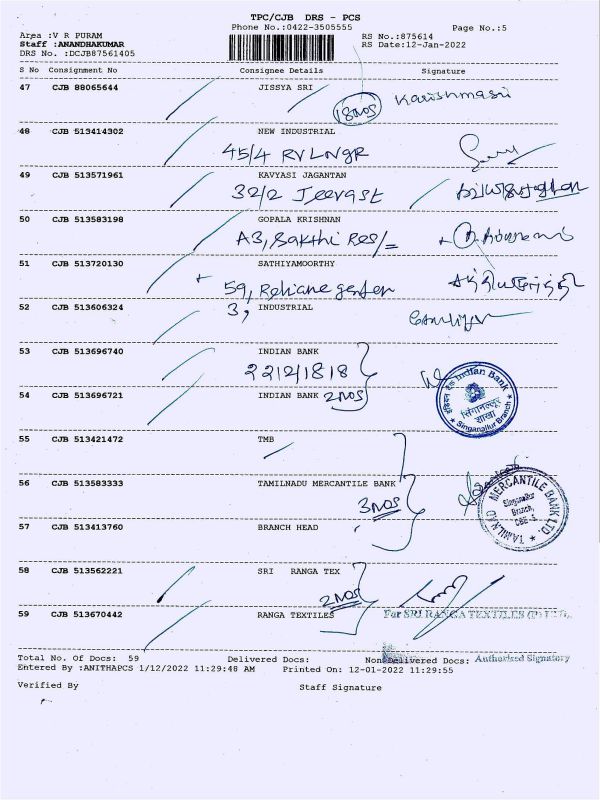 TPC/CJB DRS - PCS
Phone No.:0422-3505555
Page No.:5
Area :V R PURAM
RS No.:875614
Staff :ANANDHAKUMAR
RS Date:12-Jan-2022
DRS No. :DCJB87561405
S No Consignment No Consignee Details Signature
47 CJB 88065644 JISSYA SRI
18NOS Karishmasri
48 CJB 513414302 NEW INDUSTRIAL
45/4 RVLNGR
49 CJB 513571961 KAVYASI JAGANTAN
32/2 Jeevast
50 CJB 513583198 GOPALA KRISHNAN
A3, Sakthi Res/=
51 CJB 513720130 SATHIYAMOORTHY
59, Reliance garden
52 CJB 513606324 3, INDUSTRIAL
53 CJB 513696740 INDIAN BANK
22121818
54 CJB 513696721 INDIAN BANK 2NOS
इंडियन बैंक Indian Bank
सिंगानल्लूर
शाखा
Singanallur Branch
55 CJB 513421472 TMB
56 CJB 513583333 TAMILNADU MERCANTILE BANK
3NOS
TAMILNAD MERCANTILE BANK LTD.
Singanallur
Branch,
CBE-5
57 CJB 513413760 BRANCH HEAD
58 CJB 513562221 SRI RANGA TEX
2NOS
59 CJB 513670442 RANGA TEXTILES
For SRI RANGA TEXTILES (P) LTD.,
Authorised Signatory
Total No. Of Docs: 59 Delivered Docs: Non Delivered Docs:
Entered By :ANITHAPCS 1/12/2022 11:29:48 AM Printed On: 12-01-2022 11:29:55
Verified By Staff Signature